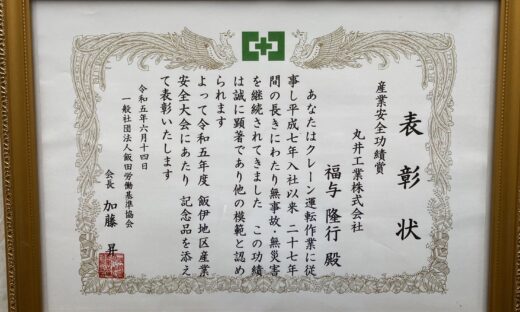 表彰状
産業安全功績賞
丸井工業株式会社
福与 隆行 殿
あなたはクレーン運転作業に従
事し平成七年入社以来 二十七年
間の長きにわたり無事故・無災害
を継続されてきました この功績
は誠に顕著であり他の模範と認め
られます
よって令和五年度 飯伊地区産業
安全大会にあたり 記念品を添え
て表彰いたします
令和五年六月十四日
一般社団法人飯田労働基準協会
会長 加藤 昇